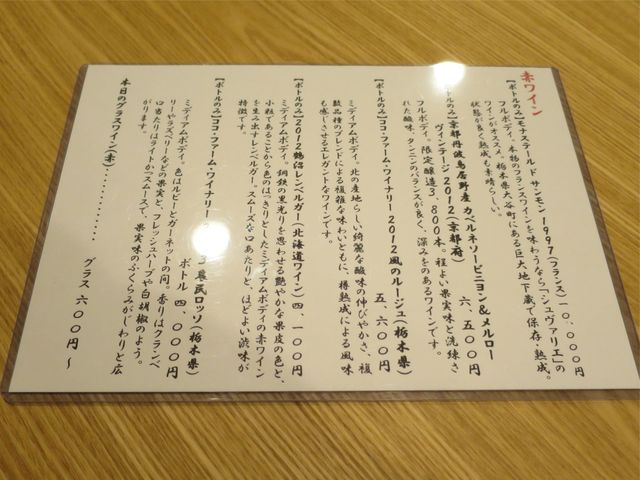 赤ワイン
【ボトルのみ】モナステールド サンモン1997(フランス)一〇、〇〇〇円
フルボディ。本物のフランスワインを味わうなら「シュヴァリエ」の
ワインがオススメ。栃木県大谷町にある巨大地下蔵で保存・熟成。
状態が良く熟成も素晴らしい。
【ボトルのみ】京都丹波鳥居野産カベルネソービニヨン&メルロー
ヴィンテージ2012(京都府) 六、五〇〇円
フルボディ。限定醸造3,800本。程よい果実味と洗練さ
れた酸味、タンニンのバランスが良く、深みをのあるワインです。
【ボトルのみ】ココ・ファーム・ワイナリー2012風のルージュ(栃木県)
五、六〇〇円
ミディアムボディ。北の産地らしい綺麗な酸味の伸びやかさ、複
数品種のブレンドによる複雑な味わいとともに、樽熟成による風味
も感じさせるエレガントなワインです。
【ボトルのみ】2012鶴沼レンベルガー(北海道ワイン)四、一〇〇円
ミディアムボディ。鋼鉄の黒光りを思わせる艶やかな果皮の色と、
小粒であることから色のはっきりとしたミディアムボディの赤ワイン
を生み出すレンベルガー。スムーズな口あたりと、ほどよい渋味が
特徴です。
【ボトルのみ】ココ・ファーム・ワイナリー 3農民ロッソ(栃木県)
ボトル 四、〇〇〇円
ミディアムボディ。色はルビーとガーネットの間。香りはクランベ
リーやラズベリーなどの果実と、フレッシュハーブや白胡椒のよう。
口当たりはライトかつスムースで、果実味のふくらみがじわりと広
がります。
本日のグラスワイン(赤)・・・・・・・・・・・ グラス 六〇〇円〜